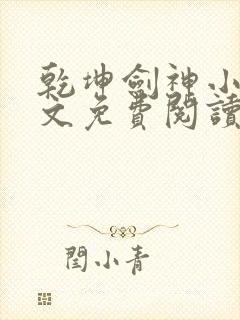 乾坤劍神小
文免費閱讀
閆小青